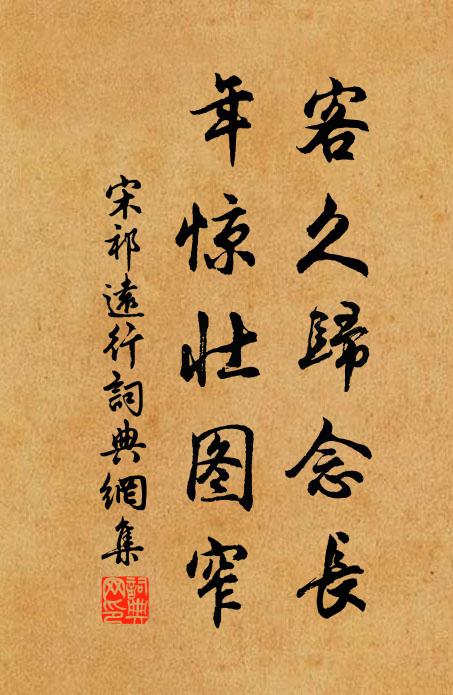 客久歸念長
年惊壮图窄
宋祁遠行詞典網集
詞典网印